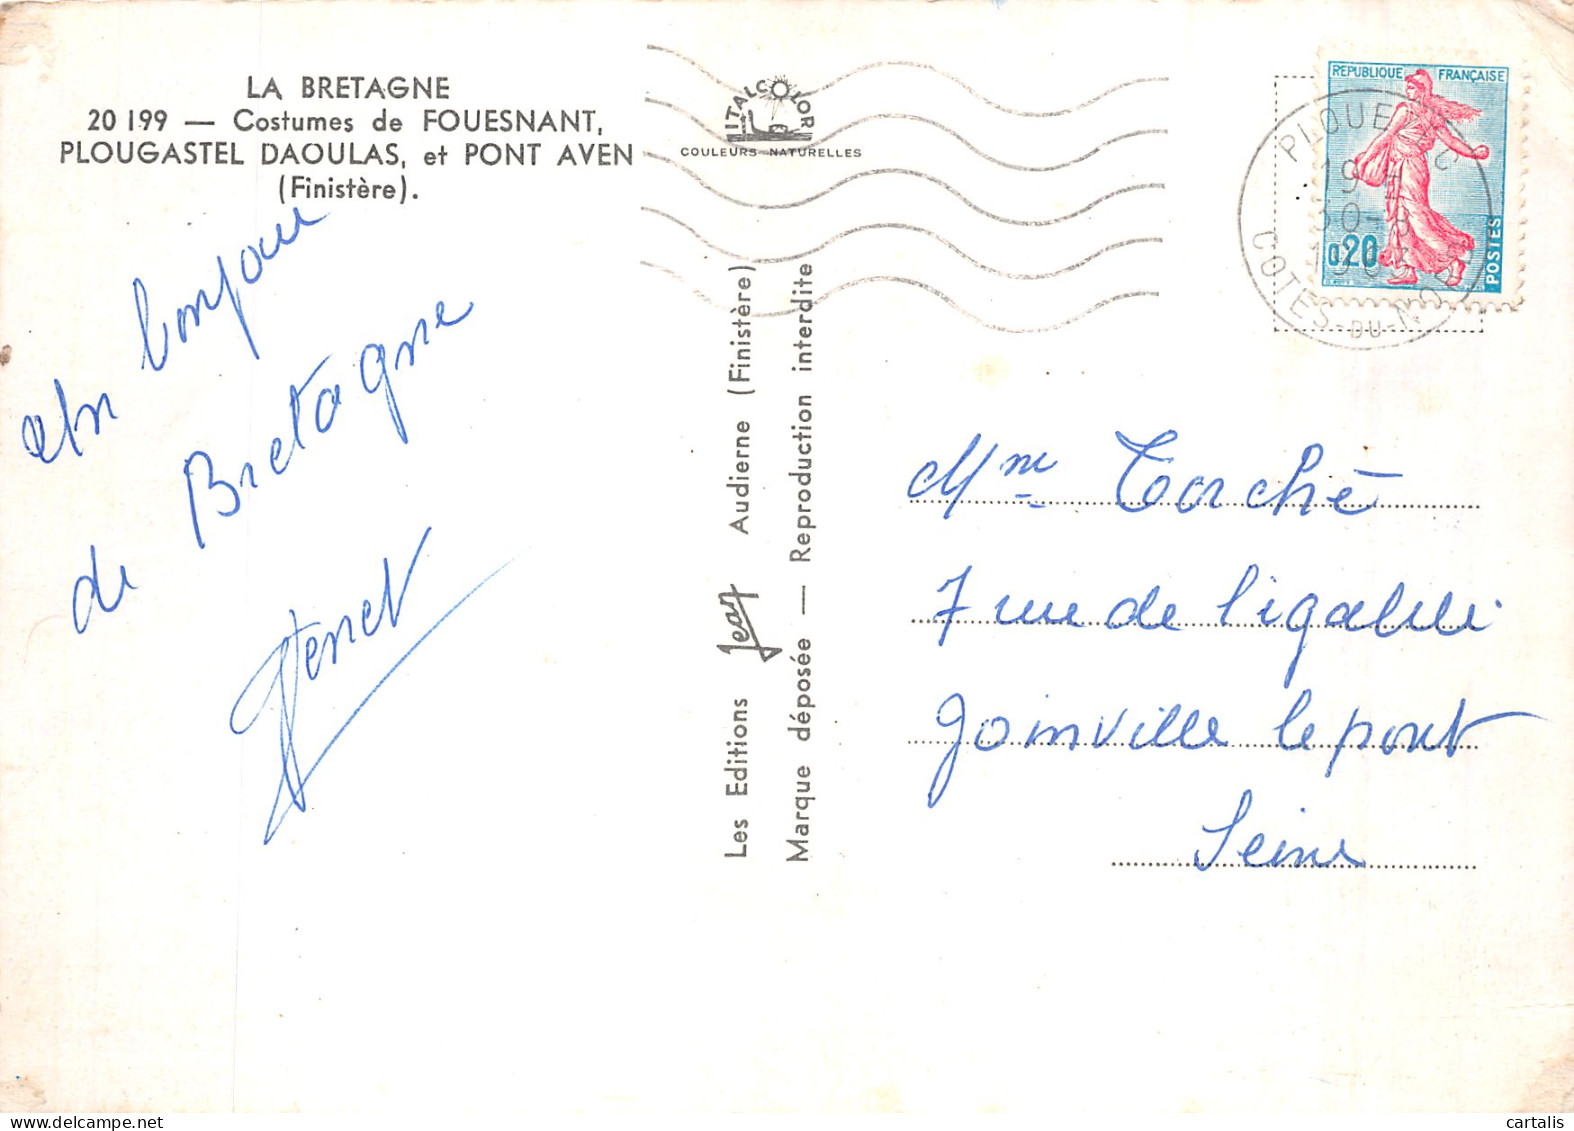 LA BRETAGNE
20 199 — Costumes de FOUESNANT,
PLOUGASTEL DAOULAS, et PONT AVEN
(Finistère).
Un bonjour
de Bretagne
ITALCOLOR
COULEURS NATURELLES
Les Editions Jean Audierne (Finistère)
Marque déposée — Reproduction interdite
REPUBLIQUE FRANÇAISE
0,20
POSTES
19 H
30-8
COTES-DU-NORD
Mme Torché
7 rue de l'égalité
Joinville le pont
Seine
cartalis